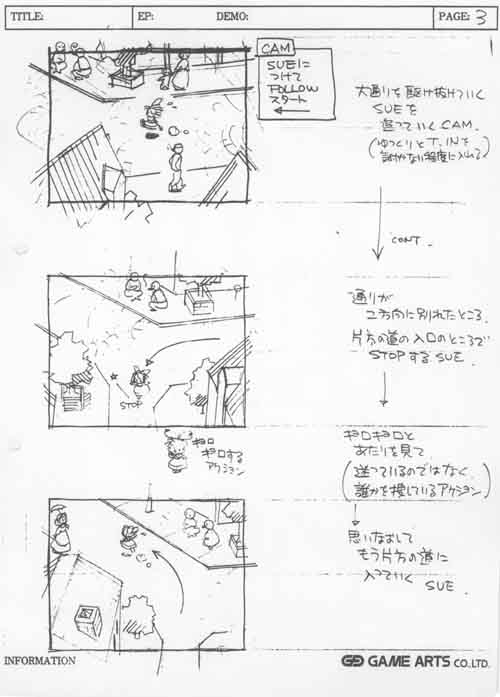 TITLE:
EP:
DEMO:
PAGE: 3
CAM
SUEに
つけて
FOLLOW
スタート
大通りを駆け抜けていく
SUEを
追っていくCAM.
(ゆっくりとT.INを
CONT.
通りが
2方向に別れたところ.
片方の道の入口のところで
STOPするSUE.
STOP
キョロ
キョロする
アクション
キョロキョロと
あたりを見て
(迷っているのではなく
誰かを捜しているアクション)
思いなおして
もう片方の道に
入っていく SUE
INFORMATION
GAME ARTS CO.,LTD.